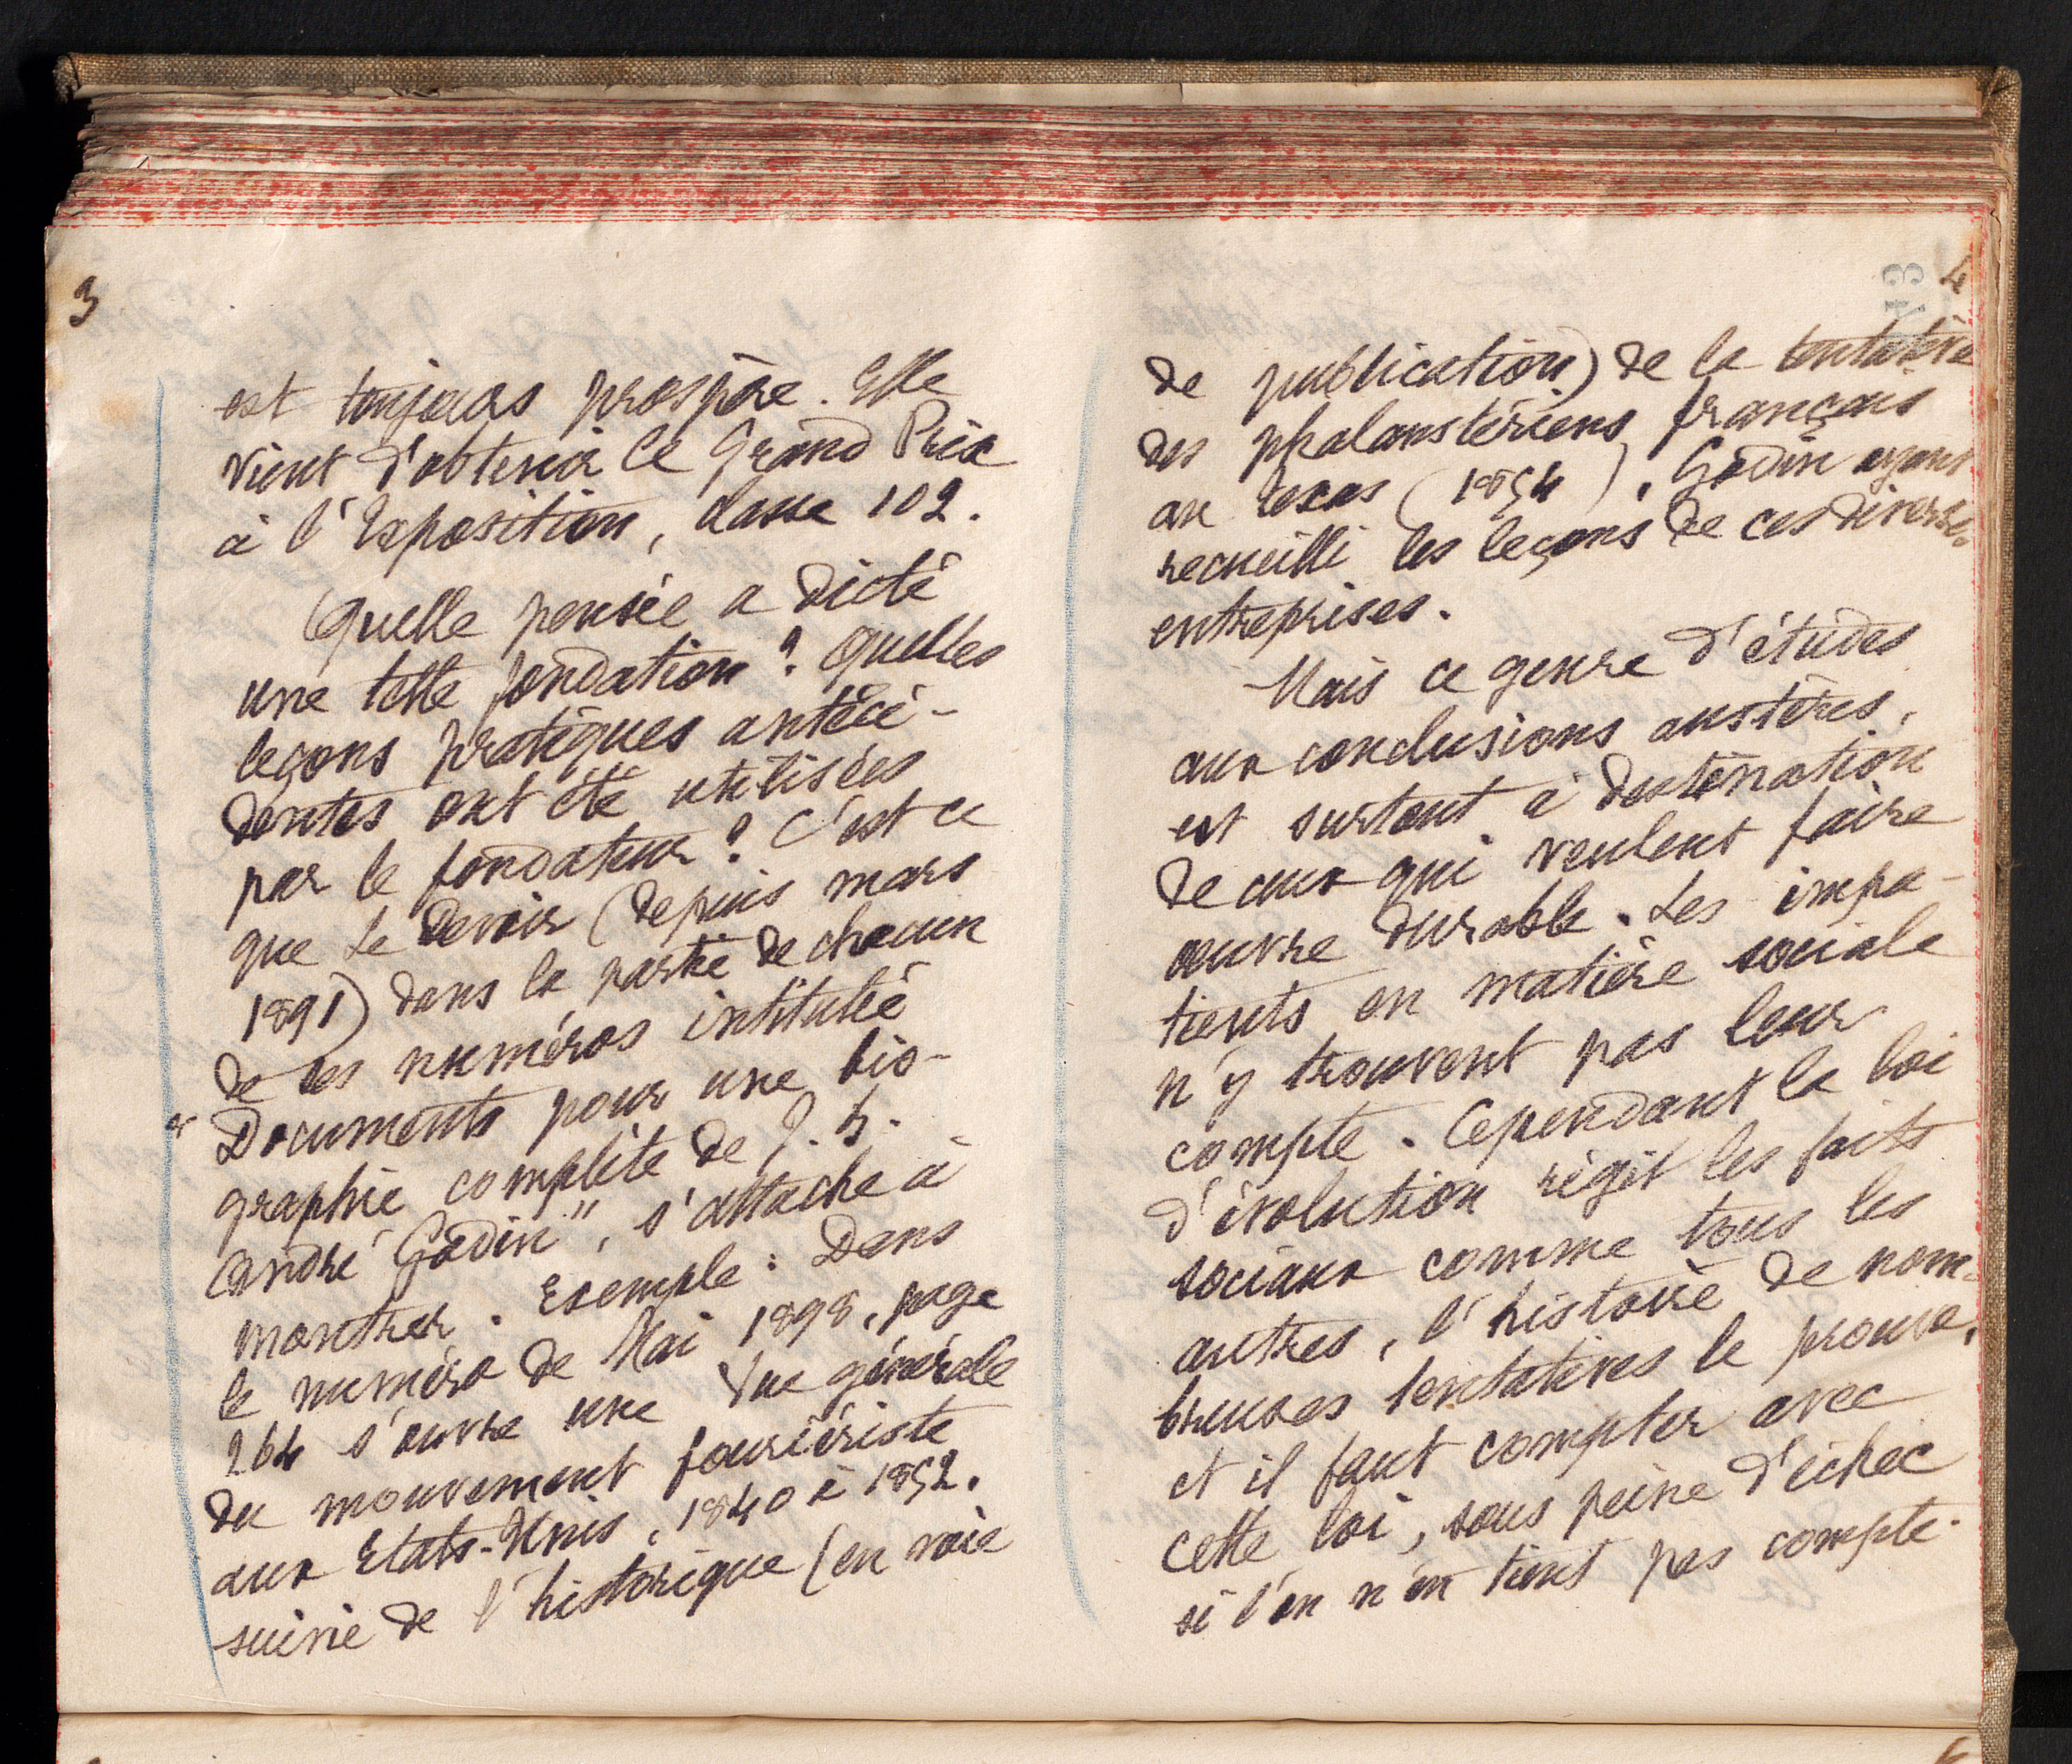 3
est toujours prospère. Elle
vient d'obtenir le Grand Prix
à l'Exposition, classe 102.
Quelle pensée a dicté
une telle fondation ? Quelles
leçons pratiques antécé-
dentes ont été utilisées
par le fondateur ? C'est ce
que Le Devoir (depuis mars
1891) dans la partie de chacun
de ses numéros intitulée
« Documents pour une bio-
graphie complète de J. B.
André Godin", s'attache à
montrer. Exemple : Dans
le numéro de Mai 1898, page
264 s'ouvre une vue générale
du mouvement fouriériste
aux Etats-Unis, 1840 à 1852.
suivie de l'historique (en voie
4
de publication) de la tentative
des phalanstériens français
au Texas (1854), Godin ayant
recueilli les leçons de ces diverses
entreprises.
Mais ce genre d'études
aux conclusions austères,
est surtout à destination
de ceux qui veulent faire
œuvre durable. Les impa-
tients en matière sociale
n'y trouvent pas leur
compte. Cependant la loi
d'évolution régit les faits
sociaux comme tous les
autres, l'histoire de nom-
breuses tentatives le prouve,
et il faut compter avec
cette loi, sous peine d'échec
si l'on n'en tient pas compte.